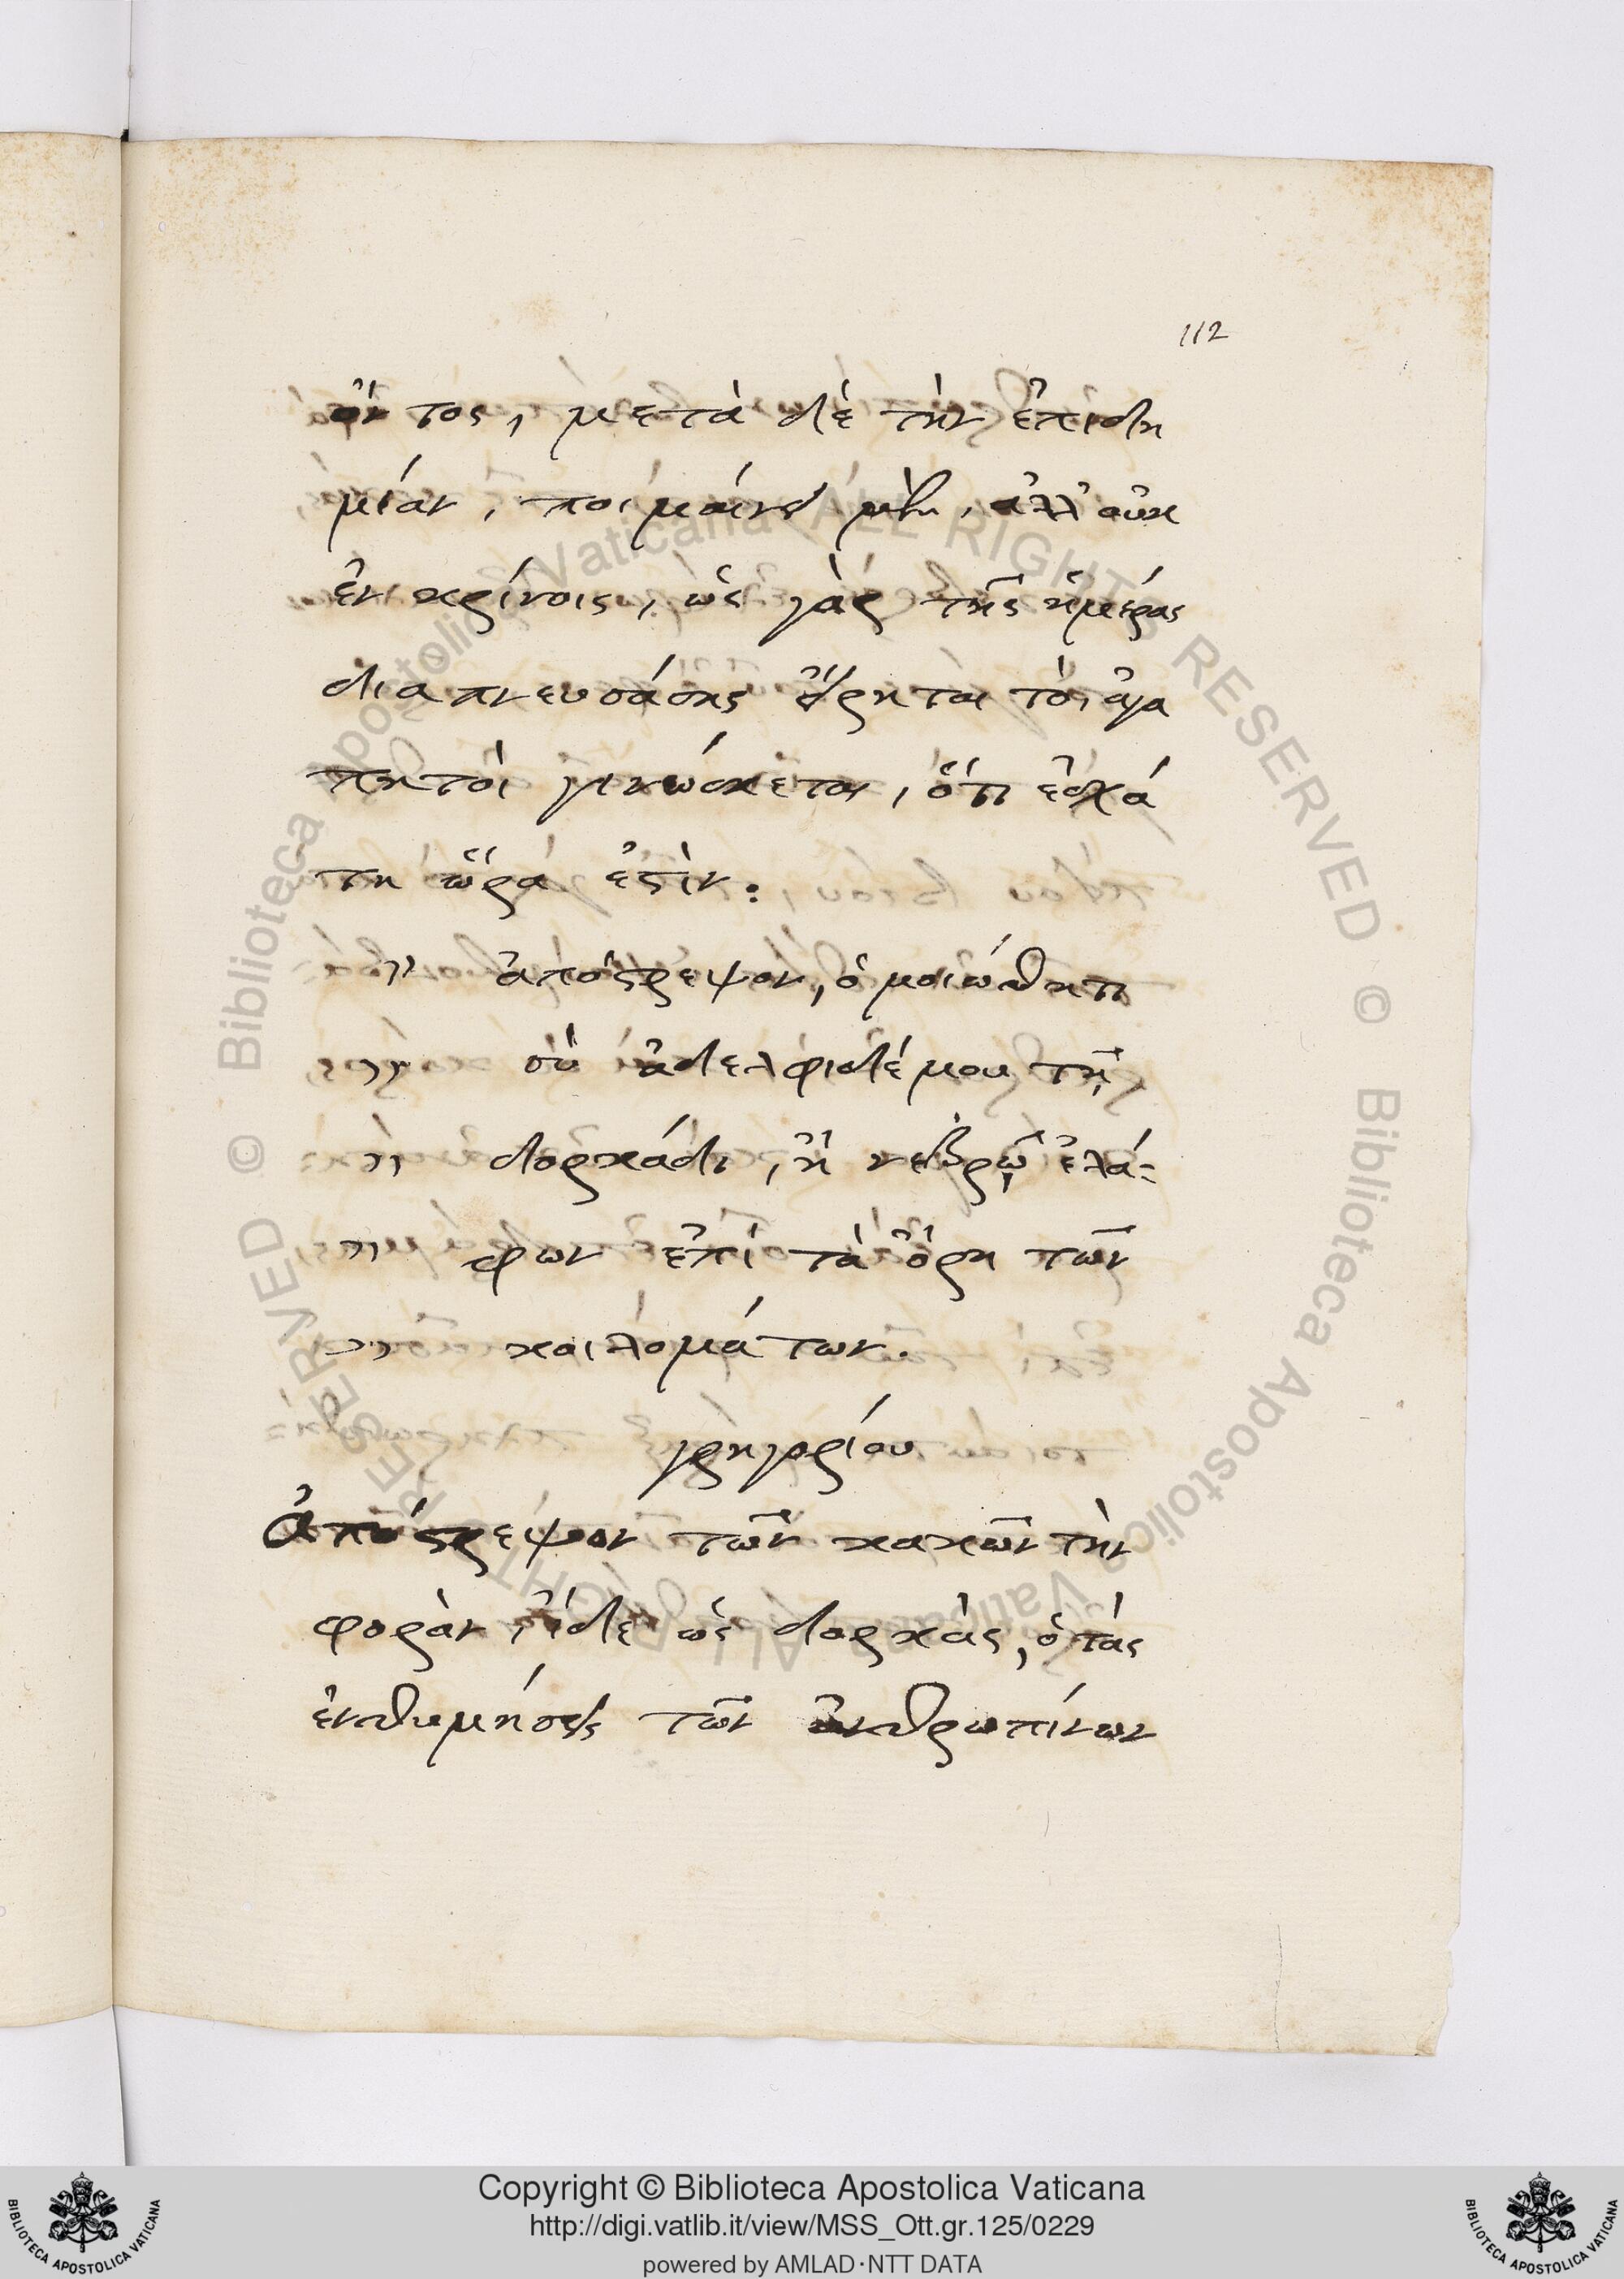 112
ὄντος, μετὰ δὲ τὴν ἐπιδη
μίαν, ποιμαίνει μὲν, ἀλλ' οὐκ
ἐν κρίνοις, ὡς γὰρ τῆς ἡμέρας
διαπνευσάσης εἴρηται τὸ, ἀγα
πητοὶ γινώσκεται, ὅτι ἐσχά
τη ὥρα ἐστὶν:
" ἀπόστρεψον, ὁμοιώθητι
" σὺ ἀδελφιδέ μου τῇ
" δορκάδι, ἢ νεβρῷ ἐλά-
" φων ἐπὶ τὰ ὄρη τῶν
" κοιλομάτων.
γρηγορίου
Ἀπόστρεψον τῶν κακῶν τὴν
φορὰν, ἴδε ὡς δορκὰς, ὁ τὰς
ἐνθυμήσεις τῶν ἀνθρωπίνων
Biblioteca Apostolica Vaticana ALL RIGHTS RESERVED © Biblioteca Apostolica Vaticana ALL RIGHTS RESERVED ©
Copyright © Biblioteca Apostolica Vaticana
http://digi.vatlib.it/view/MSS_Ott.gr.125/0229
powered by AMLAD·NTT DATA
BIBLIOTECA APOSTOLICA VATICANA
BIBLIOTECA APOSTOLICA VATICANA